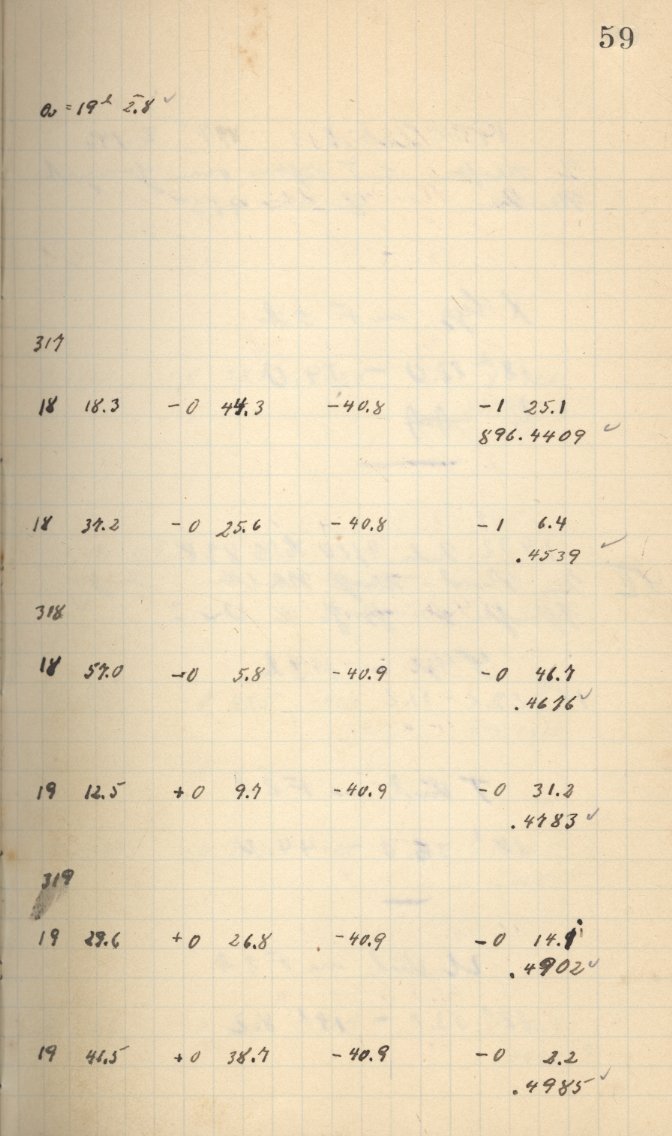 59
α = 19ʰ 2.8 ✓
317
18 18.3 -0 44.3 -40.8 -1 25.1
896.4409 ✓
18 37.2 -0 25.6 -40.8 -1 6.4
.4539 ✓
318
18 57.0 -0 5.8 -40.9 -0 46.7
.4676 ✓
19 12.5 +0 9.7 -40.9 -0 31.2
.4783 ✓
319
19 29.6 +0 26.8 -40.9 -0 14.1
.4902 ✓
19 41.5 +0 38.7 -40.9 -0 2.2
.4985 ✓